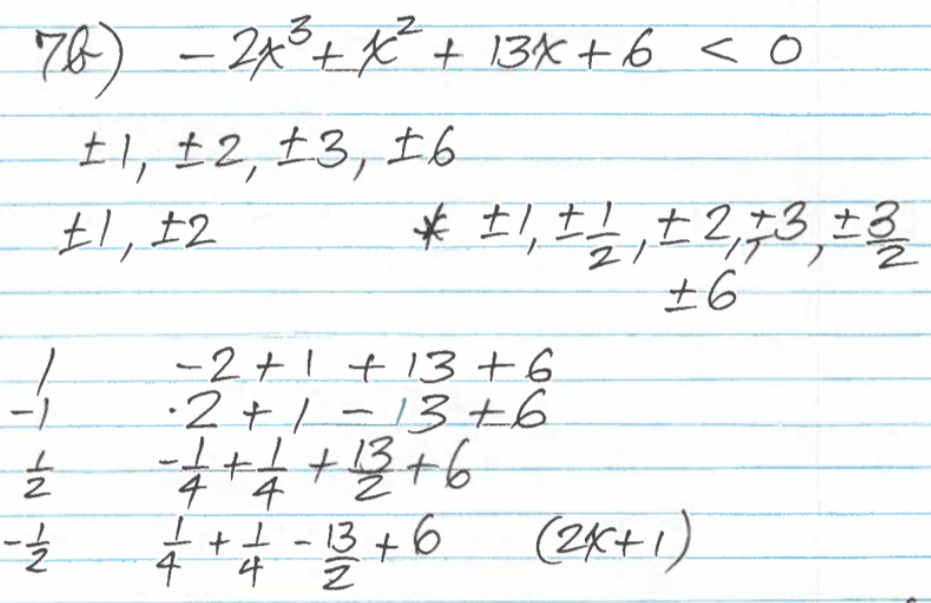 7b) -2x³ + x² + 13x + 6 < 0
±1, ±2, ±3, ±6
±1, ±2 * ±1, ±1/2, ±2, ±3, ±3/2
±6
1 -2 + 1 + 13 + 6
-1 ·2 + 1 - 13 + 6
1/2 -1/4 + 1/4 + 13/2 + 6
-1/2 1/4 + 1/4 - 13/2 + 6 (2x+1)